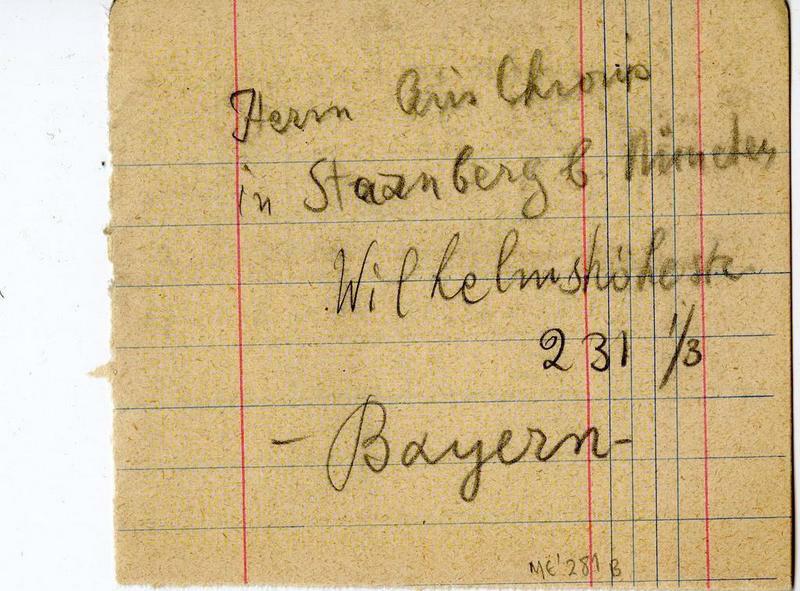 Herrn Aris Chronis
in Starnberg b. München
Wilhelmshöhestr
231 1/3
- Bayern -
ME' 281 B